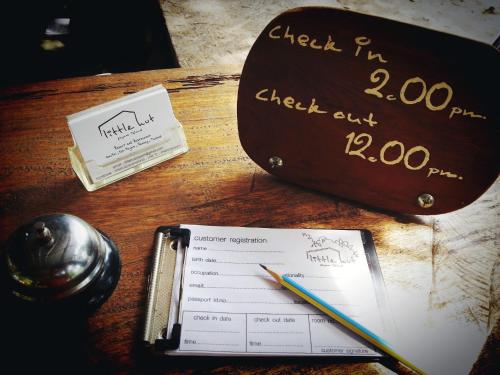 check in
2.00 pm.
check out
12.00 pm.
little hut
Resort and Restaurant
customer registration
little hut
name
birth date
occupation
nationality
email
passport id.no.
check in date
check out date
room
time
time
customer signature